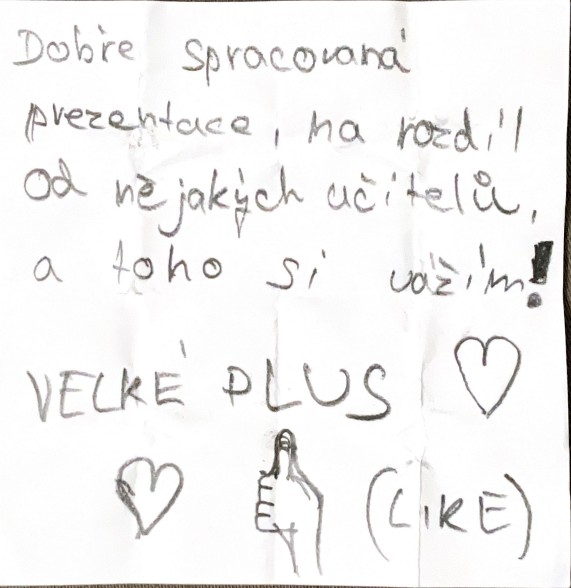 Dobře spracovaná
prezentace, na rozdíl
od nějakých učitelů,
a toho si vážím!
VELKÉ PLUS
(LIKE)